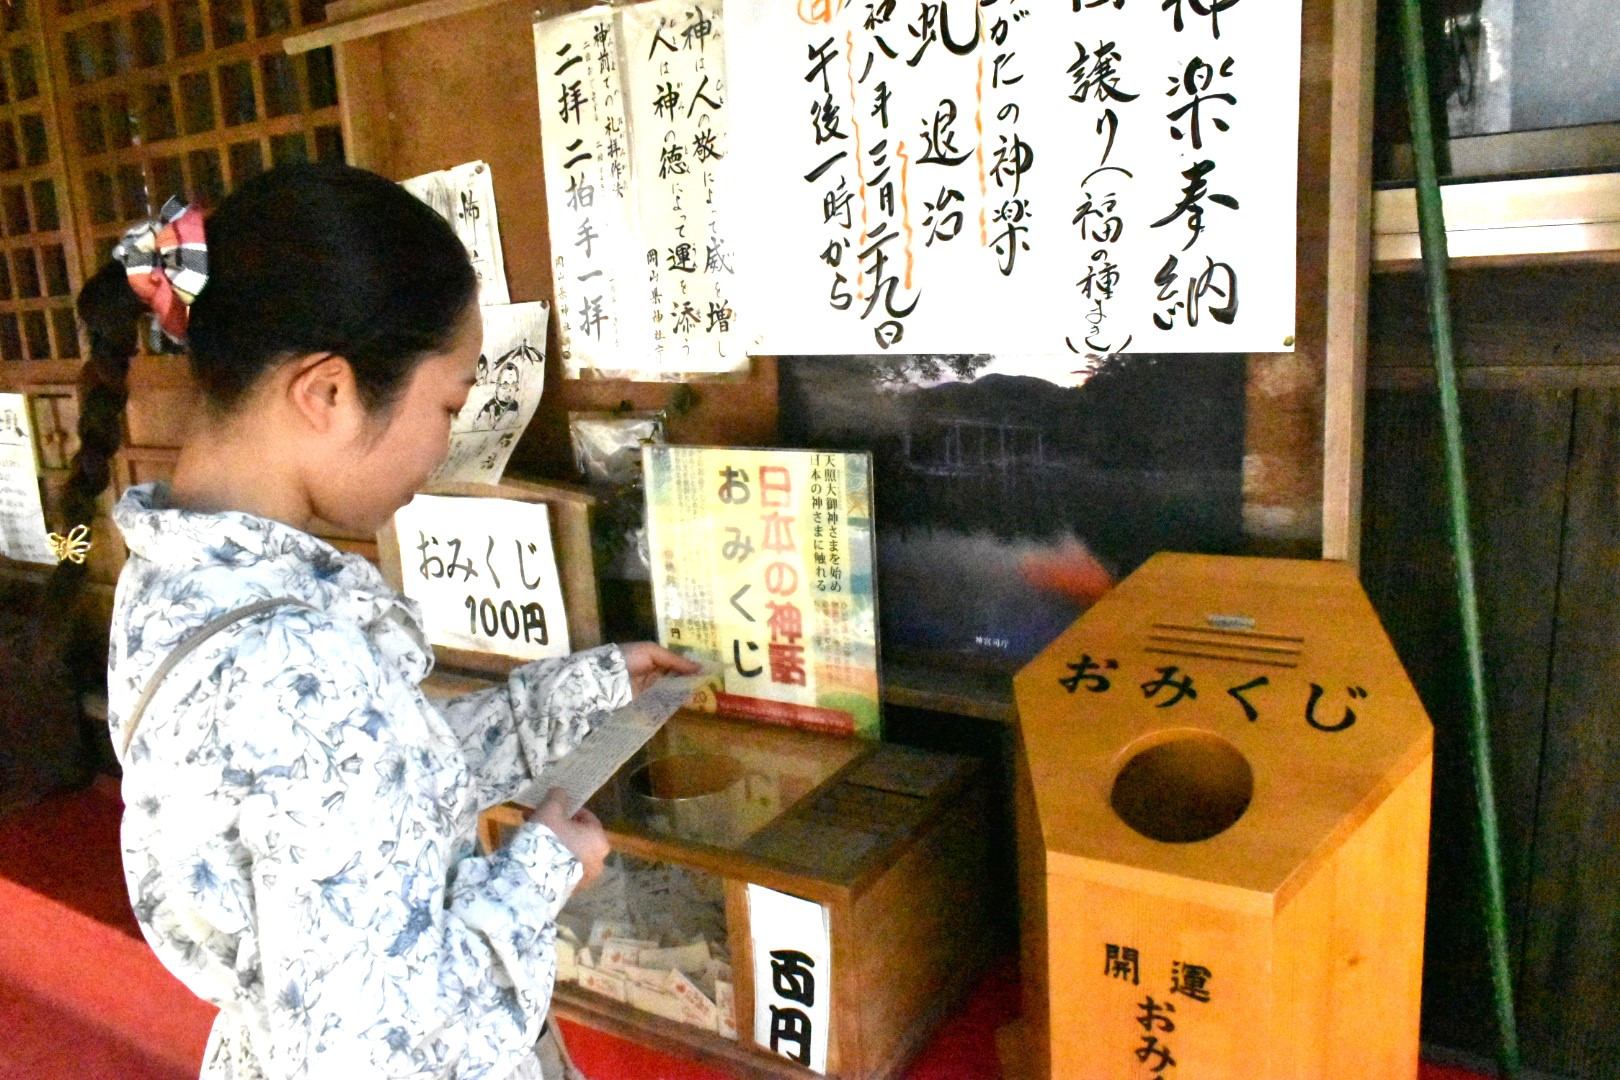 神楽奉納
譲り(福の種まき)
がたの神楽
虬退治
和八年三月二十九日
午後一時から
神は人の敬によって威を増し
人は神の徳によって運を添う
岡山県神社庁
神前での礼拝作法
二拝二拍手一拝
岡山県神社庁
おみくじ
100円
天照大御神さまを始め
日本の神さまに触れる
日本の神話
おみくじ
円
神宮司庁
おみくじ
百円
開運
おみ